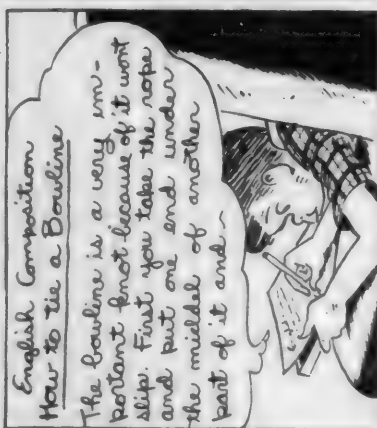 English Composition
How to tie a Bowline
The bowline is a very im-
portant knot because of it wont
slip. First you take the rope
and put one end under
the middel of another
part of it and—